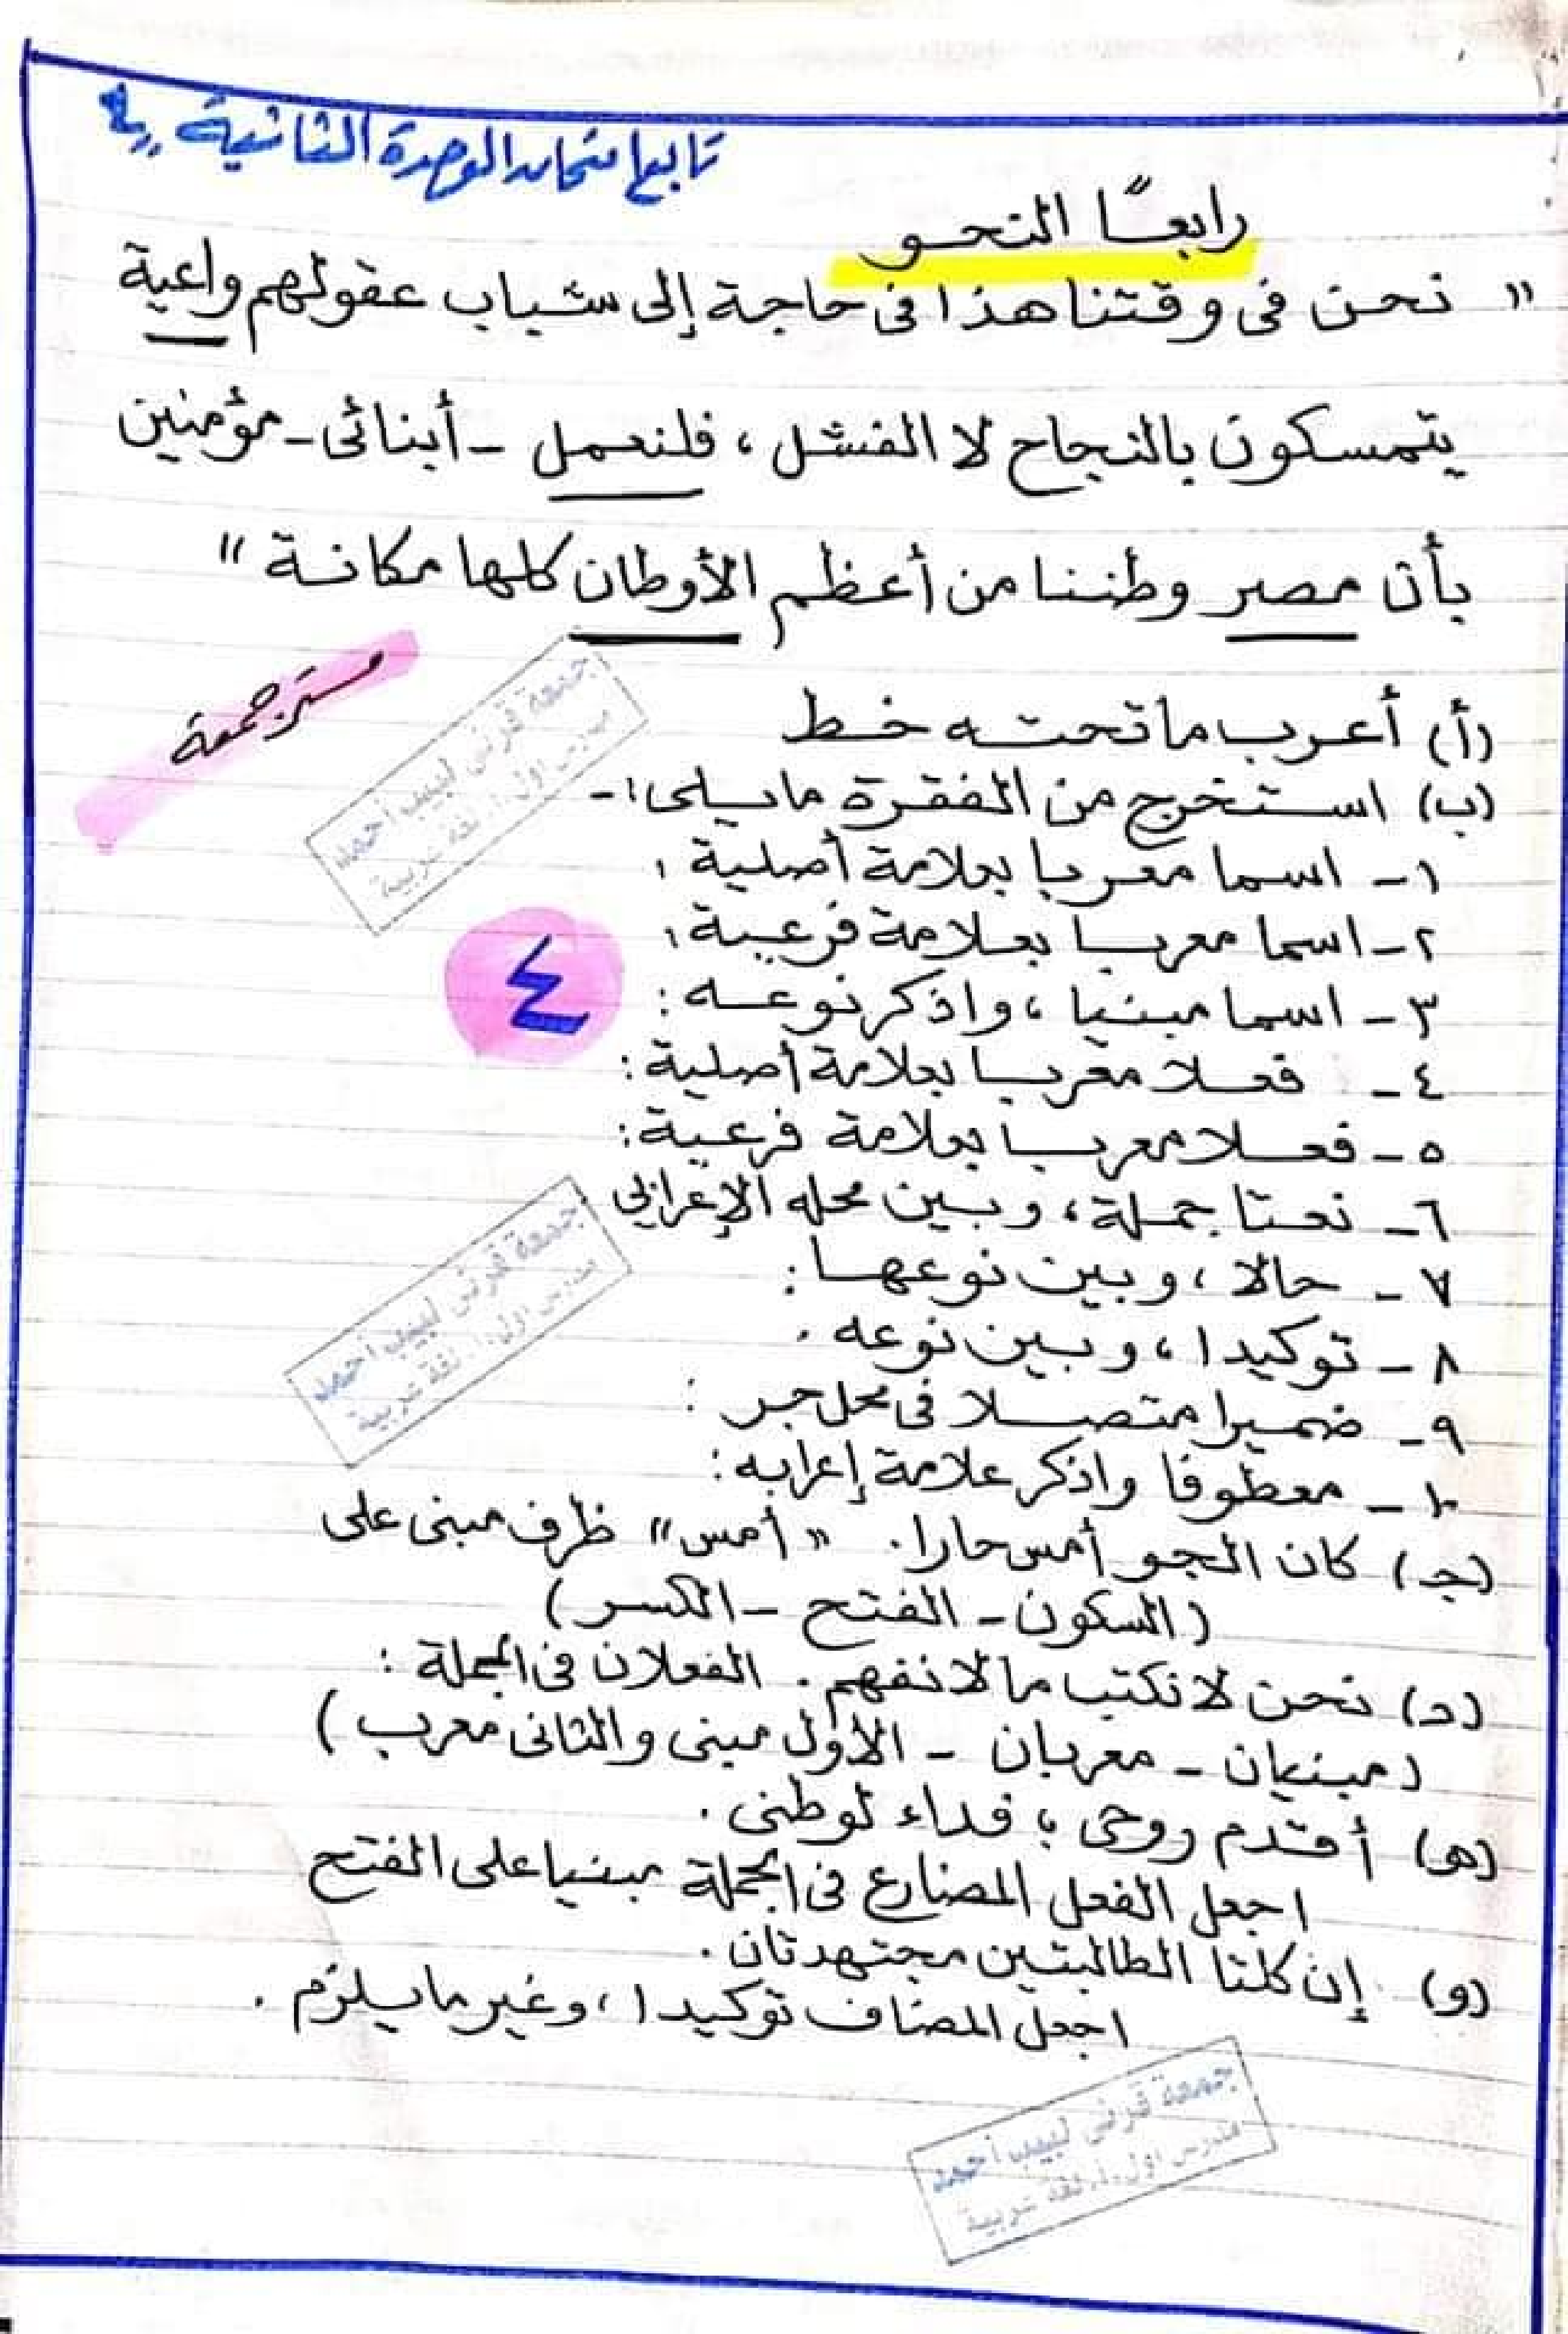 تابع امتحان الوحدة الثانية
رابعًا النحو
" نحن فى وقتنا هذا فى حاجة إلى شباب عقولهم واعية
يتمسكون بالنجاح لا الفشل ، فلنعمل - أبنائى - مؤمنين
بأن مصر وطننا من أعظم الأوطان كلها مكانة "
مستر جمعة
جمعة قرنى لبيب أحمد
مدرس أول أ. لغة عربية
(أ) أعرب ما تحته خط
(ب) استخرج من الفقرة ما يلى :-
١- اسما معربا بعلامة أصلية :
٢- اسما معربا بعلامة فرعية :
٣- اسما مبنيا ، واذكر نوعه :
٤
٤- فعلا معربا بعلامة أصلية :
٥- فعلا معربا بعلامة فرعية :
٦- نعتا جملة ، وبين محله الإعرابى
٧- حالا ، وبين نوعها :
٨- توكيدا ، وبين نوعه .
جمعة قرنى لبيب أحمد
مدرس أول أ. لغة عربية
٩- ضميرا متصلا فى محل جر :
١٠- معطوفا واذكر علامة إعرابه :
(جـ) كان الجو أمس حارا . " أمس " ظرف مبنى على
( السكون - الفتح - الكسر )
(د) نحن لا نكتب ما لا نفهم . الفعلان فى الجملة :
( مبنيان - معربان - الأول مبنى والثانى معرب )
(هـ) أقدم روحى ؛ فداء لوطنى .
اجعل الفعل المضارع فى الجملة مبنيا على الفتح
(و) إن كلتا الطالبتين مجتهدتان .
اجعل المضاف توكيدا ، وغير ما يلزم .
جمعة قرنى لبيب أحمد
مدرس أول أ. لغة عربية